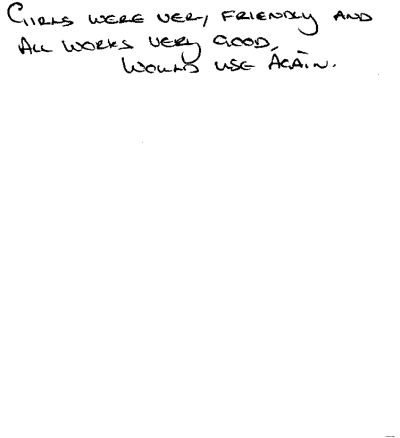 GIRLS WERE VERY FRIENDLY AND
ALL WORKS VERY GOOD,
WOULD USE AGAIN.